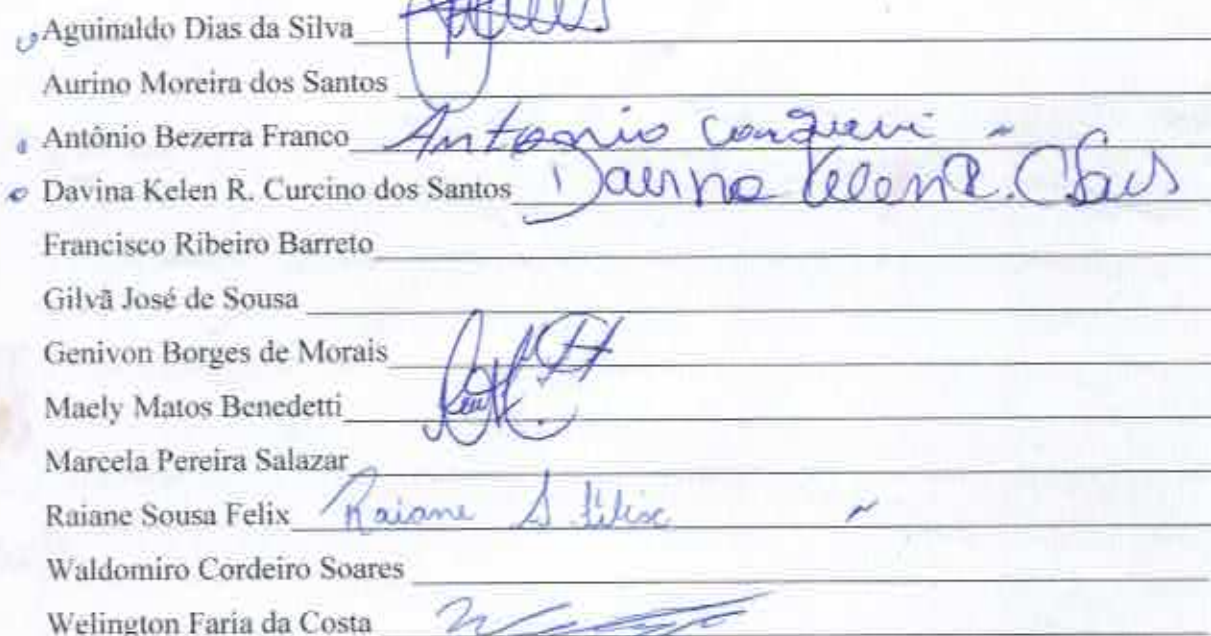 Aguinaldo Dias da Silva
Aurino Moreira dos Santos
Antônio Bezerra Franco Antonio
Davina Kelen R. Curcino dos Santos Davina Kelen R. C
Francisco Ribeiro Barreto
Gilvã José de Sousa
Genivon Borges de Morais
Maely Matos Benedetti
Marcela Pereira Salazar
Raiane Sousa Felix Raiane S Felix
Waldomiro Cordeiro Soares
Welington Faria da Costa